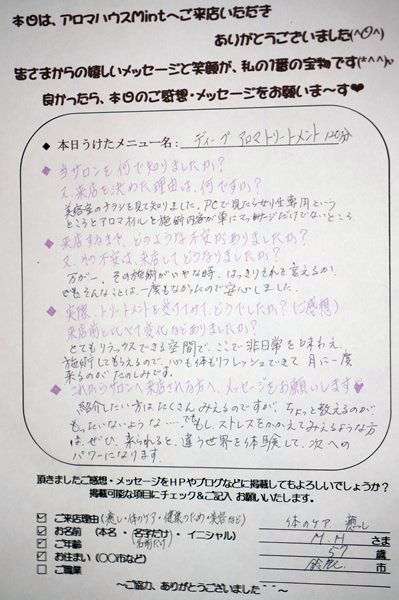 本日は、アロマハウスMintへご来店いただき
ありがとうございました(^O^)
皆さまからの嬉しいメッセージと笑顔が、私の1番の宝物です(*^^*)v
良かったら、本日のご感想・メッセージをお願いま~す❤
◆ 本日うけたメニュー名: ディープアロマトリートメント120分
◆ 当サロンを何で知りましたか?
又、来店を決めた理由は、何ですか?
美容室のチラシを見て知りました。PCで見たら女性専用という
ところとアロマオイルと施術内容が単にマッサージだけでないところ
◆ 来店するまで、どのような不安がありましたか?
又、その不安は、来店してどうなりましたか?
万が一、その施術がいやな時、はっきりそれを言えるか
でもそんなことは一度もなかったので安心しました。
◆ 実際、トリートメントを受けてみて、どうでしたか?(ご感想)
来店前と比べて変化などありましたか?
とてもリラックスできる空間で、ここで非日常を味わえ、
施術してもらえるので、心も体もリフレッシュできて 月に一度
来るのがたのしみです。
◆ これからサロンへ来店される方へ、メッセージをお願いします❤
紹介したい方はたくさんみえるのですが、ちょっと教えるのが、
もったいないような…。でももし、ストレスをかかえてみえるような方
は、ぜひ、来られると、違う世界を体験して、次への
パワーになります。
頂きましたご感想・メッセージをHPやブログなどに掲載してもよろしいでしょうか?
掲載可能な項目にチェック&ご記入 お願いいたします。
☑ ご来店理由(癒し・体のケア・健康のため・美容など) 体のケア 癒し
☑ お名前 (本名・名字だけ・イニシャル) M.H さま
(名前だけ)
☑ ご年齢 57 歳
☑ お住まい (〇〇市など) 鈴鹿 市
☐ ご職業
~ご協力、ありがとうございました~